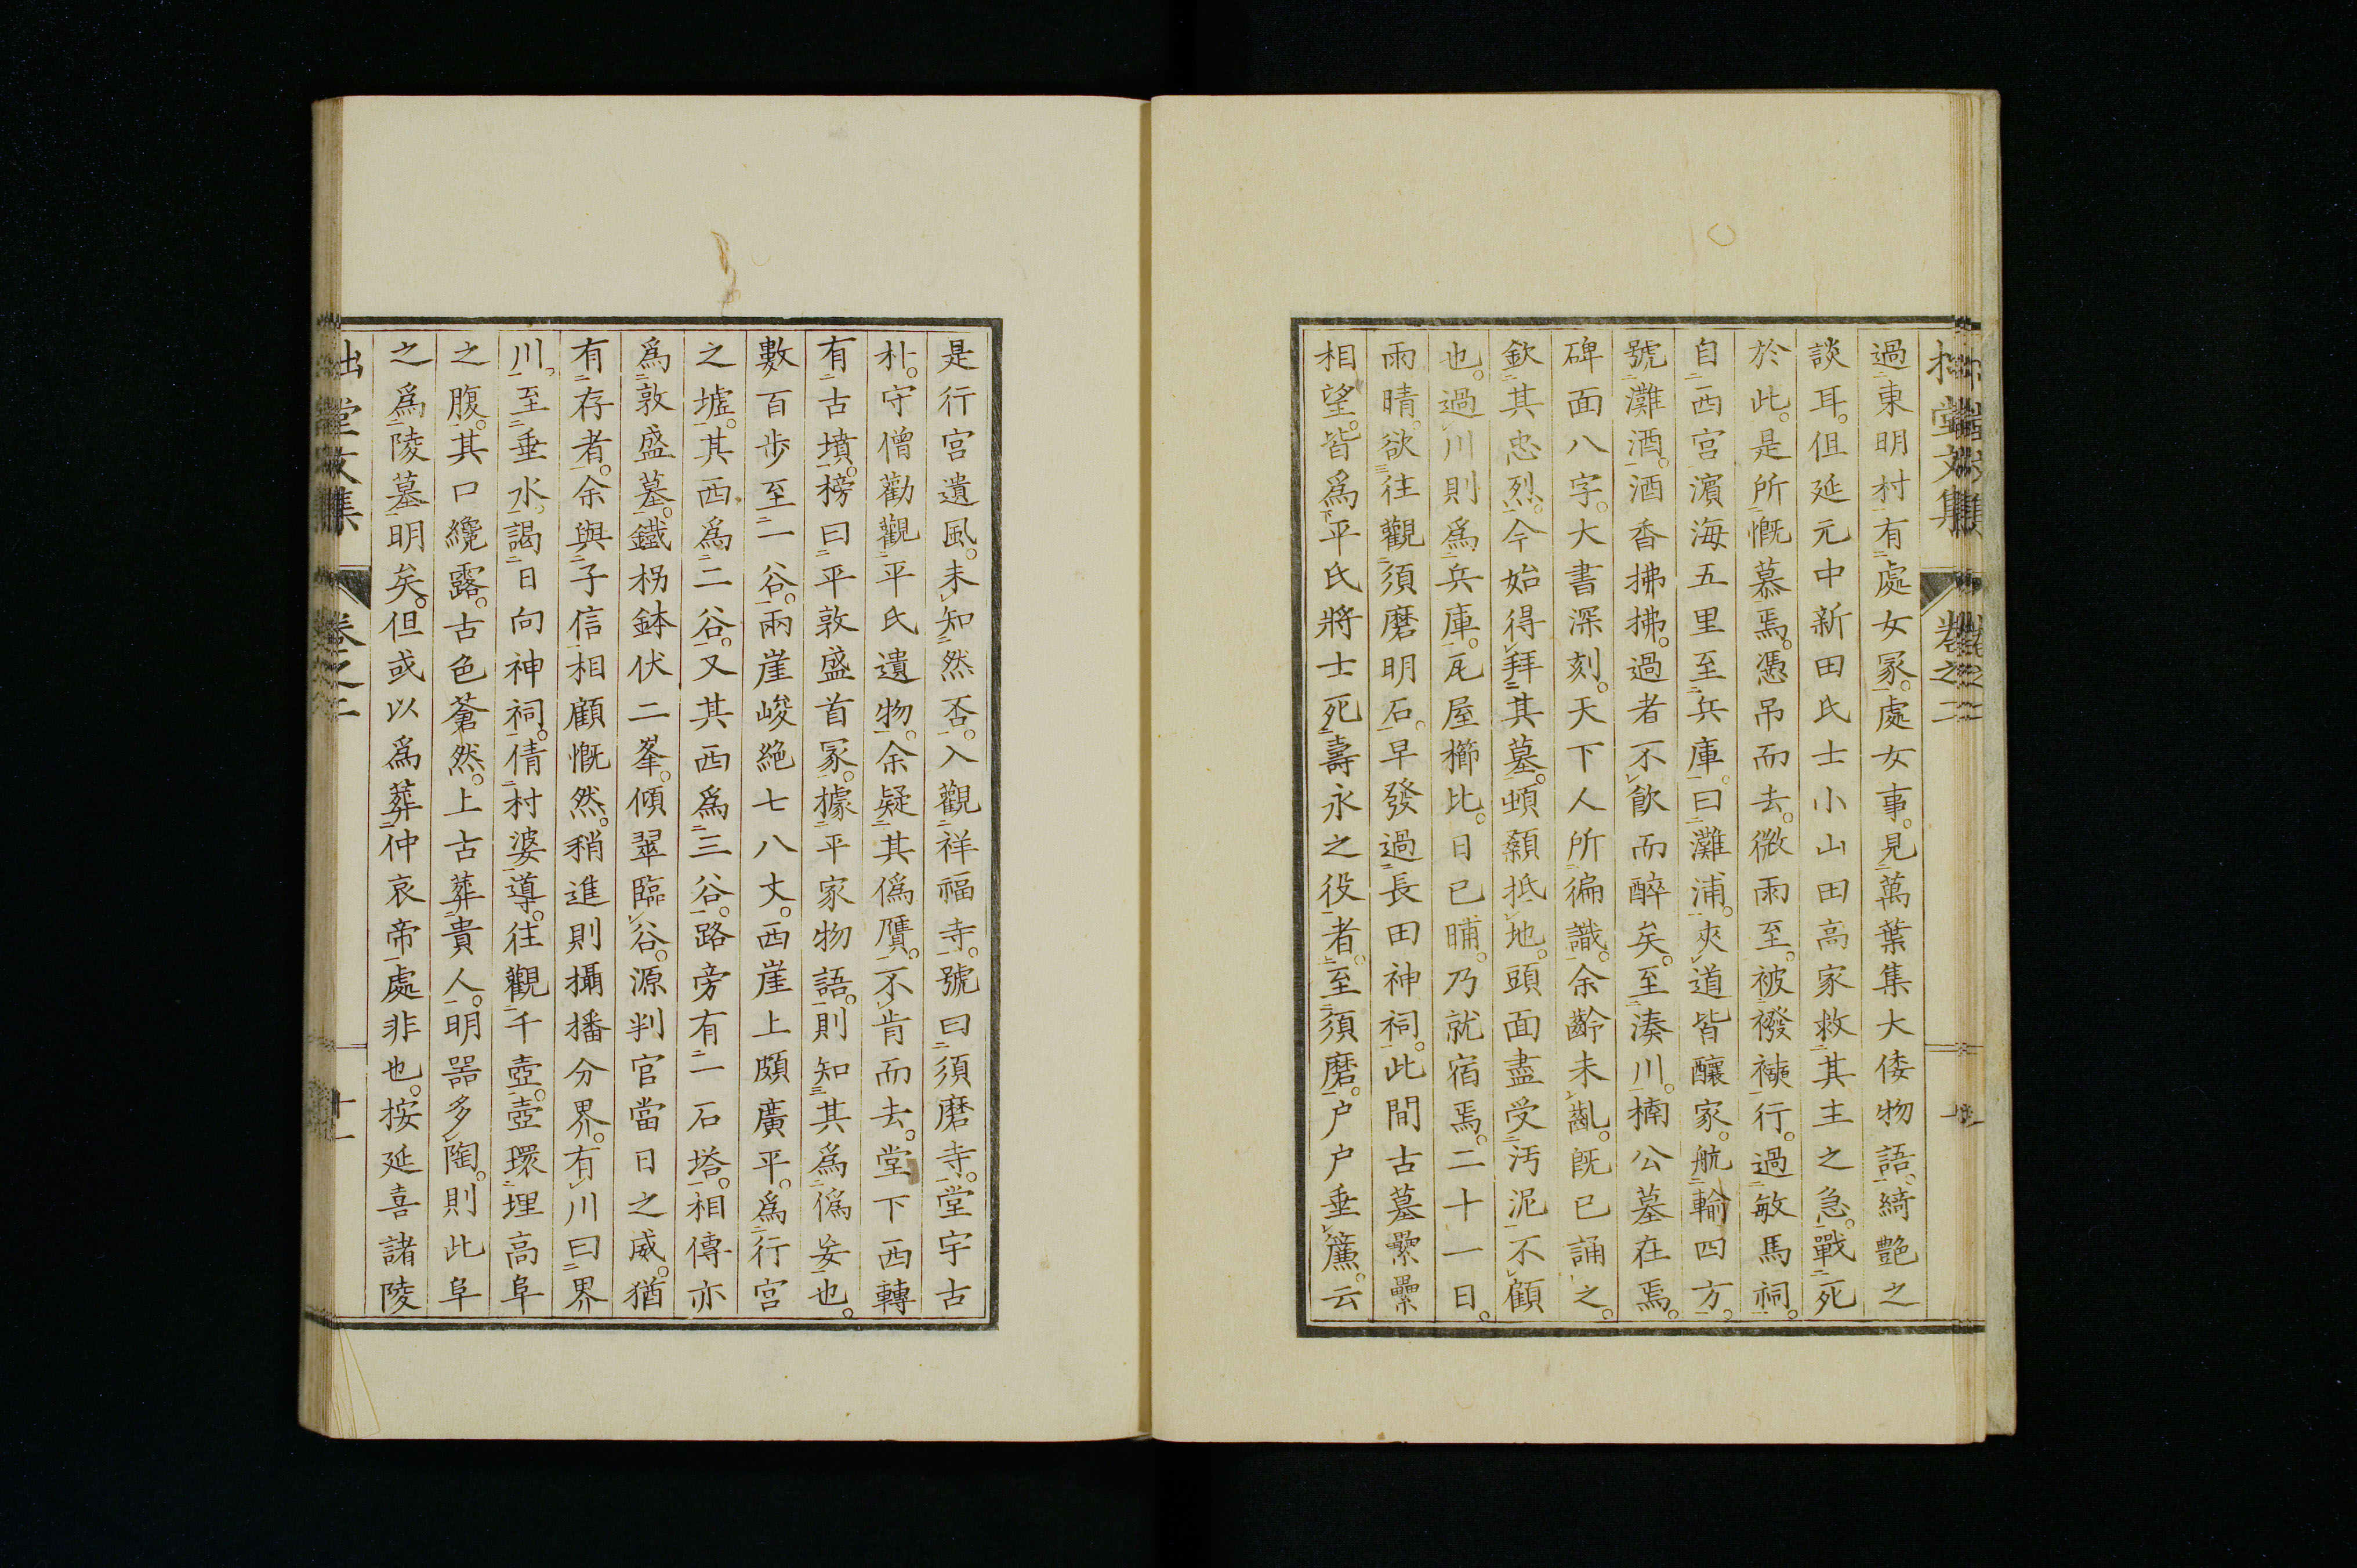 過東明村有處女冢。處女事。見萬葉集大倭物語。綺艶之
談耳。但延元中新田氏士小山田高家救其主之急。戰死
於此。是所慨慕焉。憑吊而去。微雨至。被襏襫行。過敏馬祠。
自西宮濱海五里至兵庫。曰灘浦。夾道皆釀家。航輸四方。
號灘酒。酒香拂拂。過者不飮而醉矣。至湊川。楠公墓在焉。
碑面八字。大書深刻。天下人所徧識。余齡未齔。旣已誦之。
欽其忠烈。今始得拜其墓。頓顙抵地。頭面盡受汚泥不顧
也。過川則爲兵庫。瓦屋櫛比。日已晡。乃就宿焉。二十一日。
雨晴。欲往觀須磨明石。早發過長田神祠。此間古墓纍纍
相望。皆爲平氏將士死壽永之役者。至須磨。戸戸垂簾。云
是行宮遺風。未知然否。入觀祥福寺。號曰須磨寺。堂宇古
朴。守僧勸觀平氏遺物。余疑其僞贋。不肯而去。堂下西轉
有古墳。榜曰平敦盛首冢。據平家物語。則知其爲僞妄也。
數百步至一谷。兩崖峻絶七八丈。西崖上頗廣平。爲行宮
之墟。其西爲二谷。又其西爲三谷。路旁有一石塔。相傳亦
爲敦盛墓。鐵枴鉢伏二峯。傾翠臨谷。源判官當日之威。猶
有存者。余與子信相顧慨然。稍進則攝播分界。有川曰界
川。至垂水。謁日向神祠。倩村婆導。往觀千壺。壺環埋高阜
之腹。其口纔露。古色蒼然。上古葬貴人。明器多陶。則此阜
之爲陵墓明矣。但或以爲葬仲哀帝處非也。按延喜諸陵
堂文集 卷之二 十一